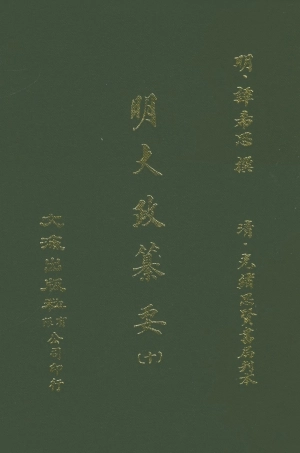 明·譚希思 撰
清·光緒思賢書局刊本
明大政纂要
(十)
文海出版社有限公司印行